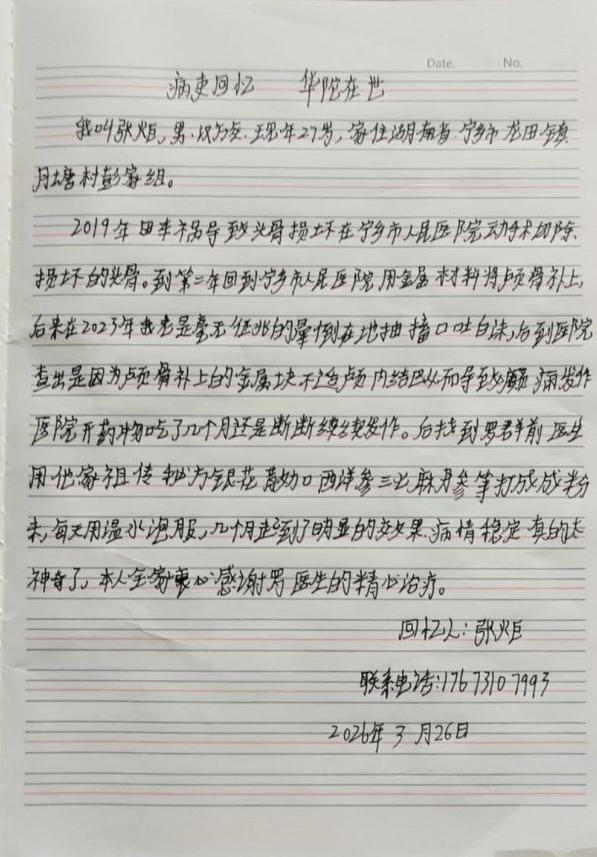 Date. No.
病史回忆 华陀在世
我叫张炬,男.汉族.现年27岁,家住湖南省宁乡市龙田镇
月塘村彭家组。
2019年因车祸导致头骨损坏在宁乡市人民医院动手术切除
损坏的头骨。到第二年回到宁乡市人民医院用金属材料将颅骨补上,
后来在2023年我老是毫无征兆的晕倒在地抽搐口吐白沫,后到医院
查出是因为颅骨补上的金属块不适颅内结巴从而导致癫痫病发作
医院开药物吃了几个月还是断断续续发作。后找到罗群前医生
用他家祖传秘方银花 西洋参三七 丹参等打成粉
末,每天用温水泡服,几个月起到了明显的效果.病情稳定真的太
神奇了,本人全家衷心感谢罗医生的精心治疗。
回忆人:张炬
联系电话:17673107993
2026年3月26日